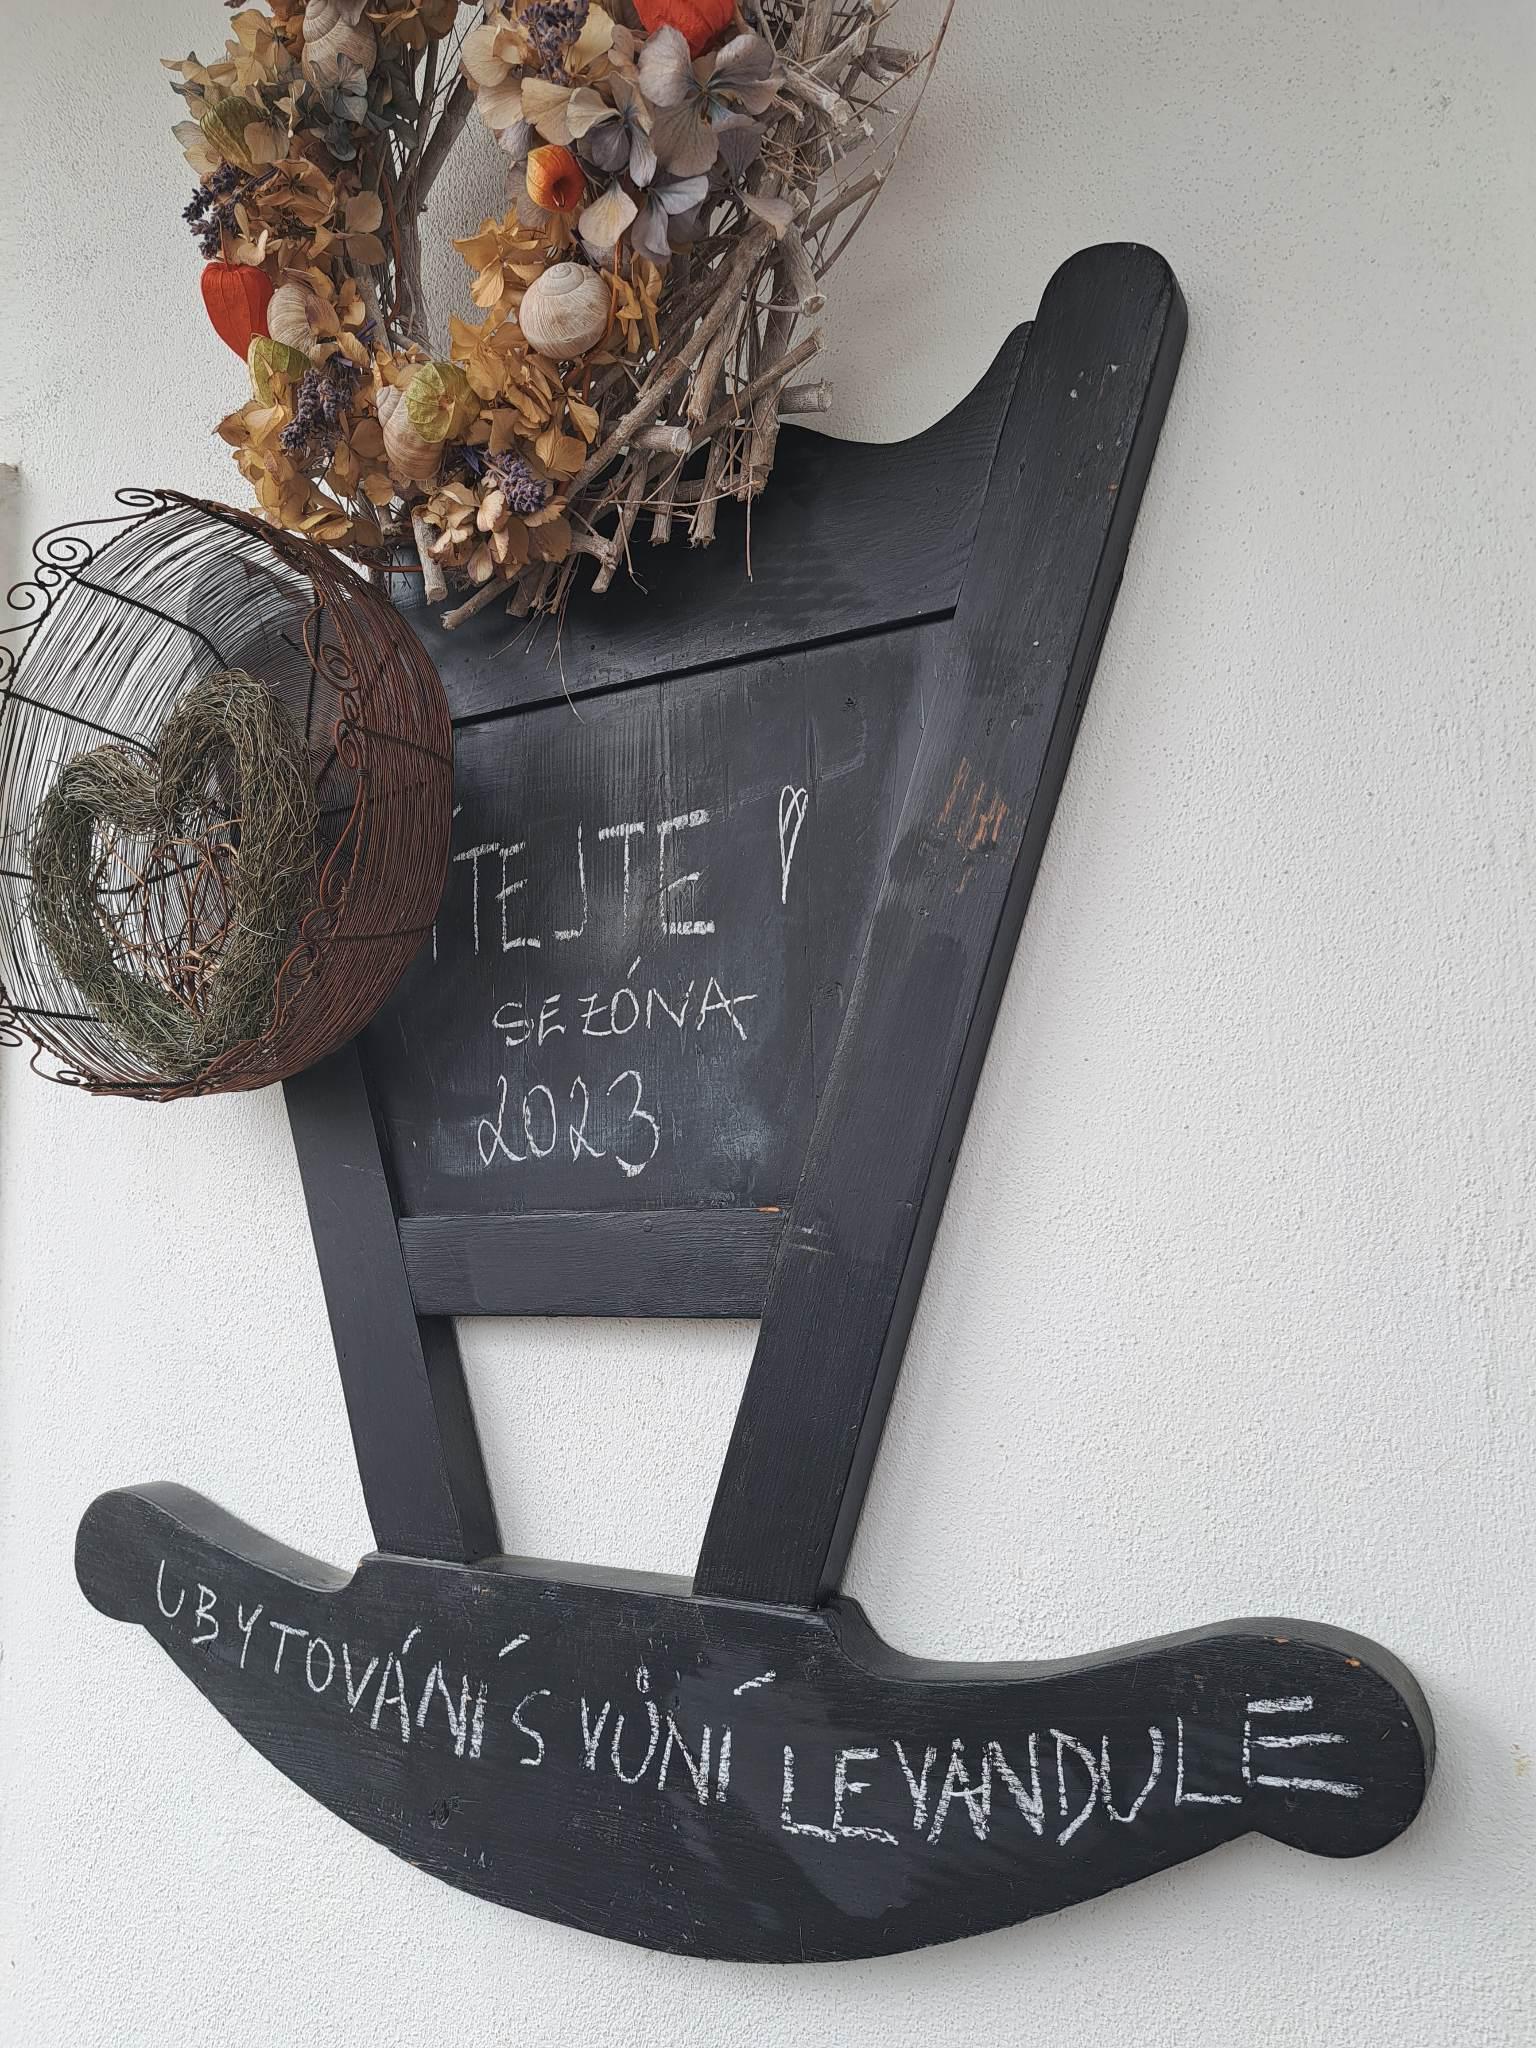 ÍTEJTE !
SEZÓNA
2023
UBYTOVÁNÍ S VŮNÍ LEVANDULE